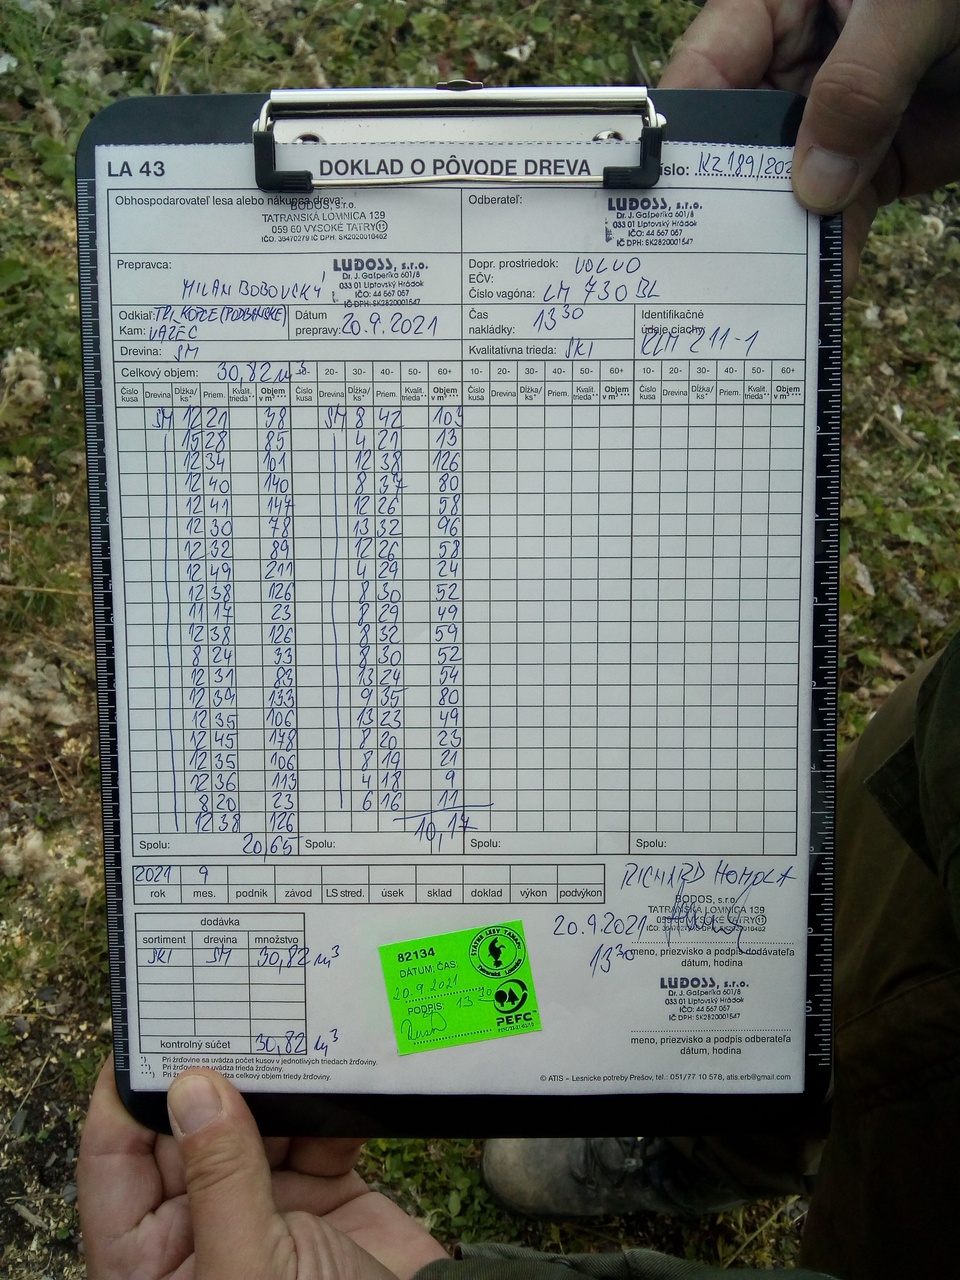 LA 43
DOKLAD O PÔVODE DREVA
íslo: KZ 189/202
Obhospodarovateľ lesa alebo nákupca dreva:
BODOS, s.r.o.
TATRANSKÁ LOMNICA 139
059 60 VYSOKÉ TATRY 11
IČO: 36470279 IČ DPH: SK2020018462
Odberateľ:
LUDOSS, s.r.o.
Dr. J. Gašperíka 601/8
033 01 Liptovský Hrádok
IČO: 44 667 057
IČ DPH: SK2820001547
Prepravca:
MILAN BOBOVSKÝ
LUDOSS, s.r.o.
Dr. J. Gašperíka 601/8
033 01 Liptovský Hrádok
IČO: 44 667 057
IČ DPH: SK2820001547
Dopr. prostriedok: VOLVO
EČV:
Číslo vagóna: LM 730 BL
Odkiaľ: (PODBANSKÉ)
Kam: VAŽEC
Dátum prepravy: 20.9.2021
Čas nakládky: 13 30
Identifikačné údaje ciachy: KLM 211-1
Drevina: SM
Kvalitatívna trieda: SKI
Celkový objem: 30,82 m3
20- 30- 40- 50- 60+ 10- 20- 30- 40- 50- 60+ 10- 20- 30- 40- 50- 60+
Číslo kusa Drevina Dĺžka/ ks* Priem. Kvalit. trieda** Objem v m³ *** Číslo kusa Drevina Dĺžka/ ks* Priem. Kvalit. trieda** Objem v m³ *** Číslo kusa Drevina Dĺžka/ ks* Priem. Kvalit. trieda** Objem v m³ *** Číslo kusa Drevina Dĺžka/ ks* Priem. Kvalit. trieda** Objem v m³ ***
SM 12 21 38 SM 8 42 103
15 28 85 4 21 13
12 34 101 12 38 126
12 40 140 8 37 80
12 41 147 12 26 58
12 30 78 13 32 96
12 32 89 12 26 58
12 49 211 4 29 24
12 38 126 8 30 52
11 17 23 8 29 49
12 38 126 8 32 59
8 24 33 8 30 52
12 31 83 13 24 54
12 39 133 9 35 80
12 35 106 13 23 49
12 45 178 8 20 23
12 35 106 8 19 21
12 36 113 4 18 9
8 20 23 6 16 11
12 38 126 10,17
Spolu: 20,65 Spolu: Spolu: Spolu:
2021 9
rok mes. podnik závod LS stred. úsek sklad doklad výkon podvýkon
RICHARD
20.9.2021
13 30
BODOS, s.r.o.
TATRANSKÁ LOMNICA 139
059 60 VYSOKÉ TATRY 11
meno, priezvisko a podpis dodávateľa
dátum, hodina
dodávka
sortiment drevina množstvo
SKI SM 30,82 m3
kontrolný súčet 30,82 m3
82134
DÁTUM, ČAS:
20.9.2021
13 30
PODPIS:
ŠTÁTNE LESY TANAPu
Tatranská Lomnica
PEFC
LUDOSS, s.r.o.
Dr. J. Gašperíka 601/8
033 01 Liptovský Hrádok
IČO: 44 667 057
IČ DPH: SK2820001547
meno, priezvisko a podpis odberateľa
dátum, hodina
*) Pri žrďovine sa uvádza počet kusov v jednotlivých triedach žrďoviny.
**) Pri žrďovine sa uvádza trieda žrďoviny.
***) Pri žrďovine sa uvádza celkový objem triedy žrďoviny.
© ATIS – Lesnícke potreby Prešov, tel.: 051/77 10 578, atis.erb@gmail.com